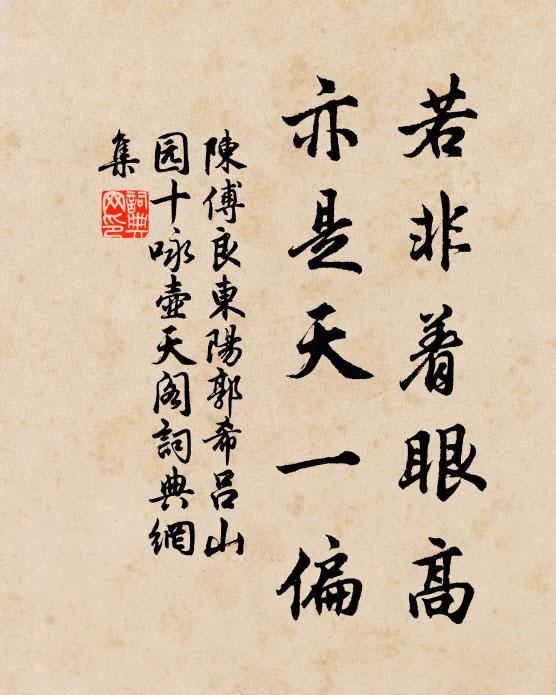 若非着眼高
亦是天一偏
陳傅良東陽郭希呂山
园十咏壺天阁詞典網
集
詞典
网印